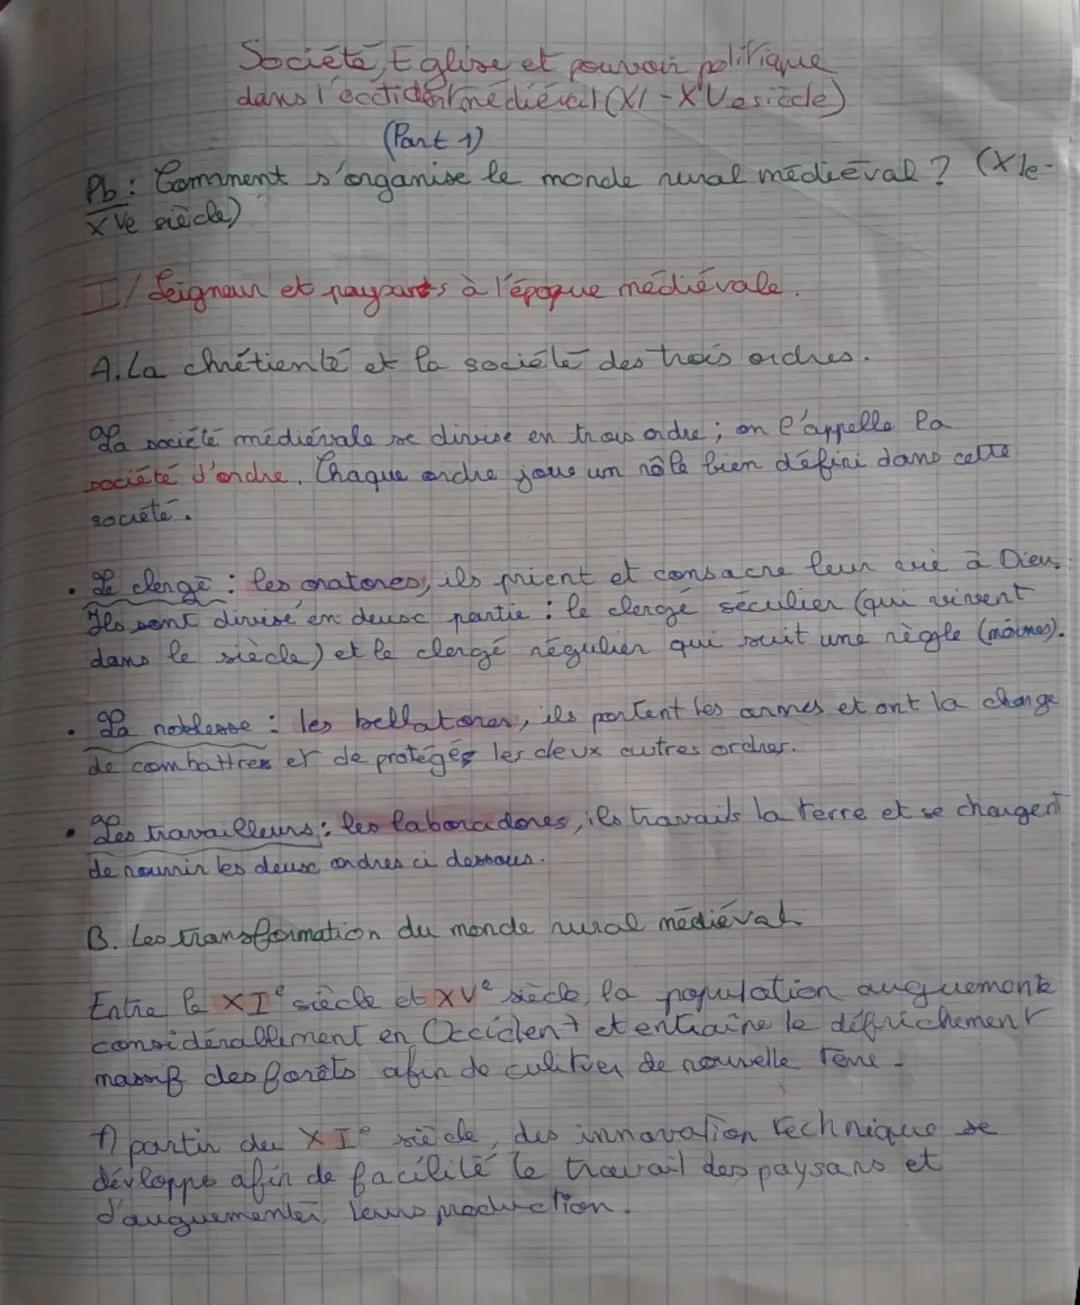 Société, Eglise et pouvoir politique
dans l'occtident médiéval (XI - XVe siècle)
(Part 1)
Pb : Comment s'organise le monde rural médiéval ? (XIe-
XVe siècle)
I/ Seigneur et paysants à l'époque médiévale.
A. La chrétienté et la société des trois ordres.
La société médiévale se divise en trois ordre ; on l'appelle la
société d'ordre. Chaque ordre joue un rôle bien défini dans cette
société.
• Le clergé : les oratores, ils prient et consacre leur vie à Dieu.
Ils sont divisé en deux partie : le clergé séculier (qui vivent
dans le siècle) et le clergé régulier qui suit une règle (moines).
• La noblesse : les bellatores, ils portent les armes et ont la charge
de combattres et de protéger les deux autres ordres.
• Les travailleurs : les laboradores, ils travails la terre et se chargent
de nourrir les deux ordres ci dessous.
B. Les transformation du monde rural médiéval
Entre le XIe siècle et XVe siècle, la population auguemente
considérablement en Occident et entraîne le défrichement
massif des forêts afin de culitver de nouvelle terre.
A partir du XIe siècle, des innovation technique se
dévloppe afin de facilité le travail des paysans et
d'auguementer leurs production.